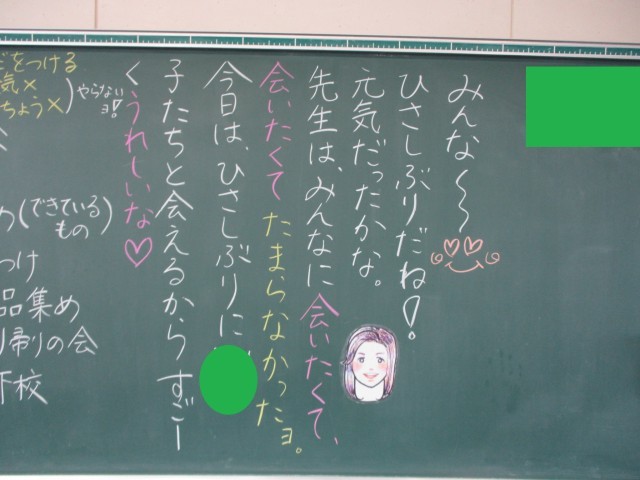 みんな～～
ひさしぶりだね!
元気だったかな。
先生は、みんなに会いたくて、
会いたくてたまらなかったヨ。
今日は、ひさしぶりに
子たちと会えるからすごー
くうれしいな♡
をつける
気×
ちょう×
やらない
ヨ!
(できている
もの)
つけ
品集め
帰りの会
下校